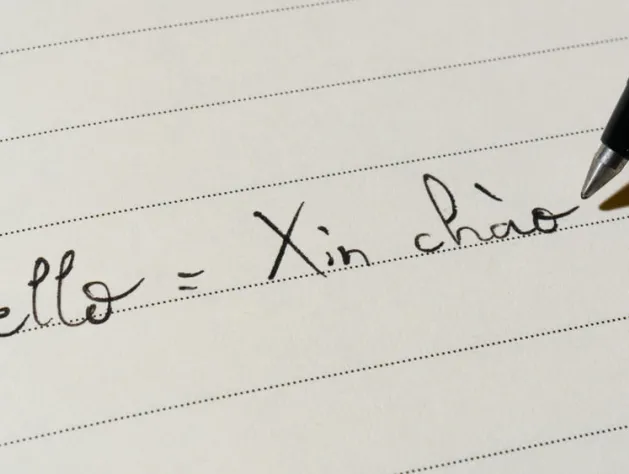 ello = Xin chào